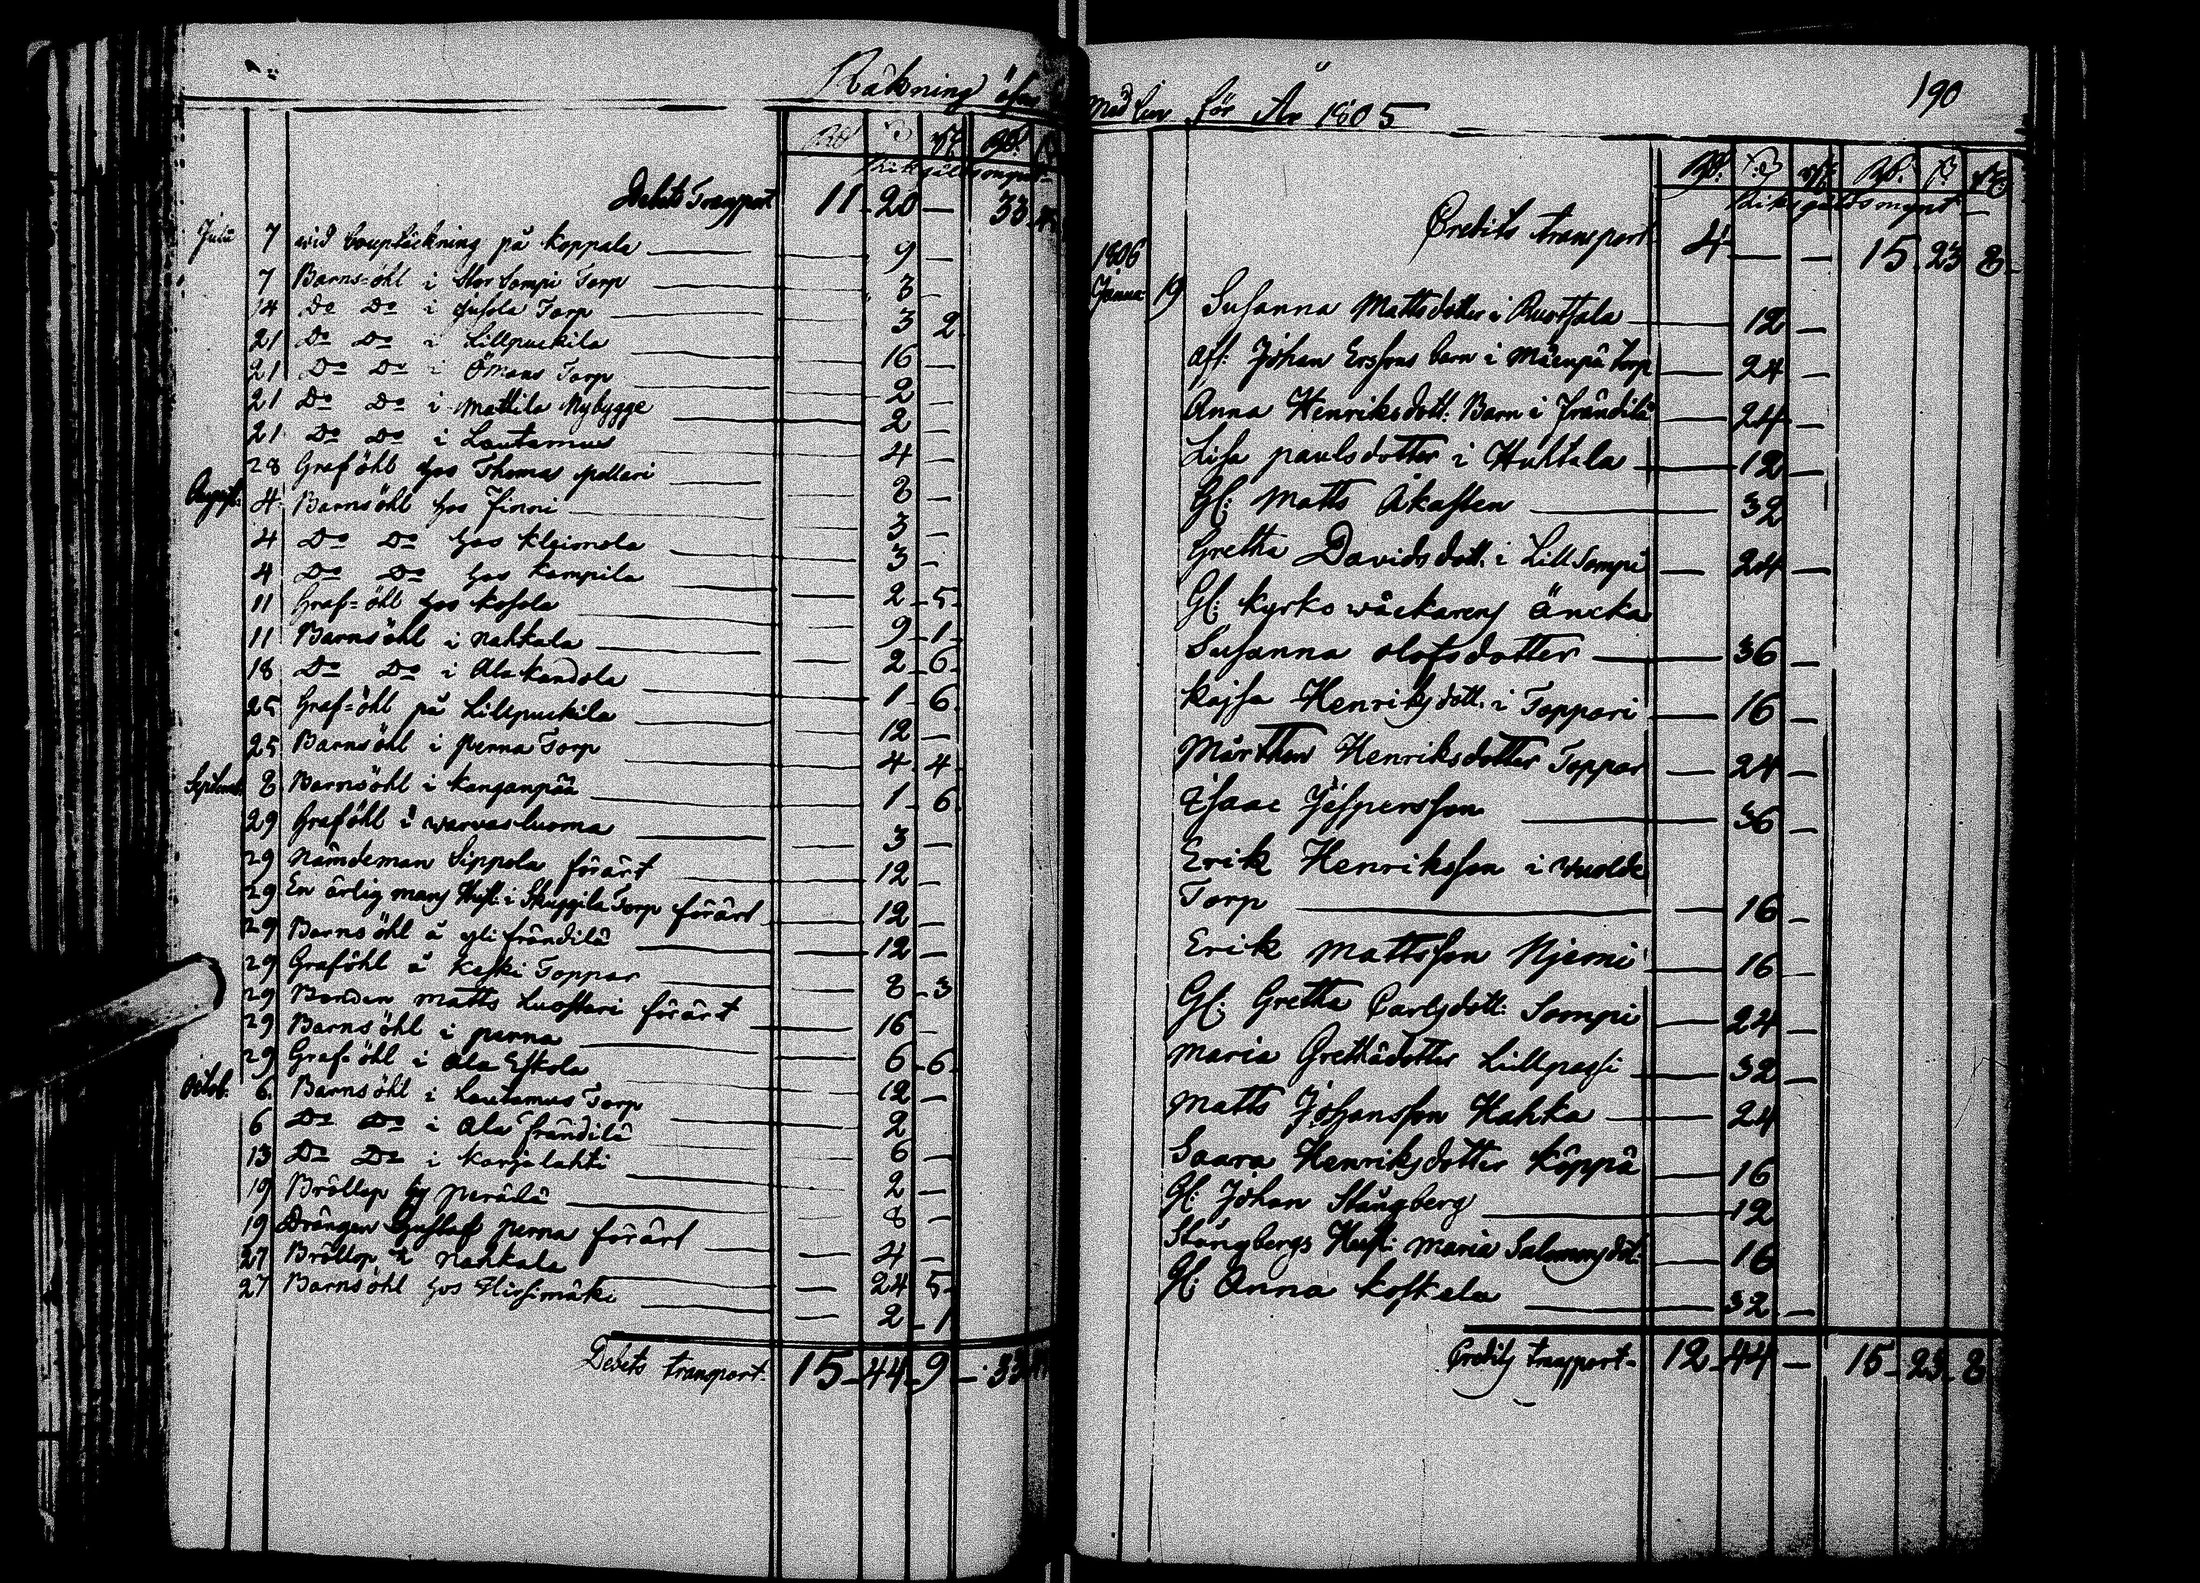 Räkning öfver
Rd ß rst Rd. ß
Riksgäldsmynt
Debets Transport 11 - 20 — 33
Julii 7 wid bouptäckning på Koppala — 9 —
7 Barns-öhl i Stor Sompi Torp — 3 —
14 Do Do i Jusola Torp — 3 2.
21 Do Do i Lillpuckila — 16 —
21 Do Do i Ömans Torp — 2 —
21 Do Do i Mattila Nybygge — 2 —
21 Do Do i Lautamus — 4 —
28 Graföhl hos Thomas Peltari — 8 —
August: 4 Barnsöhl hos Finni — 3 —
4 Do Do hos Kleimola — 3 -
4 Do Do hos Kampila — 2 - 5 -
11 Graf=öhl hos Kosola — 9 - 1 -
11 Barnsöhl i Nahkala — 2 - 6 -
18 Do Do i Ala Kandola — 1 - 6.
25 Graf=öhl på Lillpuckila — 12 —
25 Barnsöhl i Perna Torp — 4 - 4 -
Septemb. 8 Barnsöhl i Kanganpää — 1 - 6
29 Graföhl i Warvasluoma — 3 —
29 Nämdeman Sippola förärt — 12 —
29 En ärlig mans Hust: i Skuggila Torp förärt — 12 —
29 Barnsöhl å yli frändilä — 12 —
29 Graföhl å Keski Toppar — 8 - 3
29 Bonden Matts Luostari förärt — 16 -
29 Barnsöhl i perna — 6 - 6 -
29 Graf=öhl i Ala Eskola — 12 —
Octob. 6. Barnsöhl i Lautamus Torp — 2
6 Do Do i Ala frändilä — 6 —
13 Do Do i Karjalahti — 2 —
19 Bröllop by Perälä — 8 —
19 Drängen Gustaf Perna förärt — 4 —
27 Bröllop Nahkala — 24 5 -
27 Barnsöhl hos Hirsimäki — 2 - 1
Debets transport. 15 - 44 - 9 — 33
190
Medlen för År 1805
Rd. ß rst Rd. ß rst
Riksgäldsmynt —
Credits transport 4 — — 15. 23 8 -
1806
Janua 19 Susanna Mattsdotter i Ruotsala — 12 —
Afl: Johan Erssons barn i Mäenpä torp — 24 —
Anna Henriksdott. Barn i frändilä — 24 —
Lisa paulsdotter i Huhtala — 12 —
Gl: Matts Åkasten — 32
Gretha Davidsdott. i Lill Sompi — 24 —
Gl: Kyrko wäckarens Äncka
Susanna olofsdotter — 36 —
Kajsa Henriksdott. i Toppari — 16 —
Märtha Henriksdotter Toppar — 24 —
Isaac Jespersson — 36 —
Erik Henriksson i Wuolde
Torp — 16 —
Erik Mattsson Njemi — 16 —
Gl: Gretha Carlsdott: Sompi — 24 —
Maria Grethädotter Lillpassi — 32 —
Matts Johansson Hahka — 24
Saara Henriksdotter Köppä — 16
Gl: Johan Stångberg — 12
Stångbergs Hust: Maria Salomonsdot: — 16
Gl: Anna Koskela — 32 —
Credits transport - 12 - 44 — 15 - 23 - 8